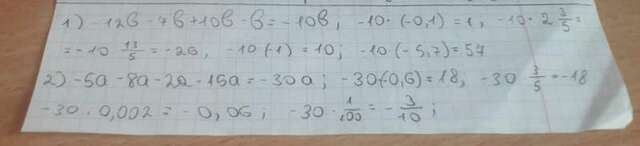 1) -12в - 7в + 10в - в = -10в; -10·(-0,1) = 1; -10·2 3/5 =
= -10 · 13/5 = -26, -10(-1) = 10; -10(-5,7) = 57
2) -5а - 8а - 2а - 15а = -30а; -30(-0,6) = 18, -30 · 3/5 = -18
-30 · 0,002 = -0,06; -30 · 1/100 = -3/10;